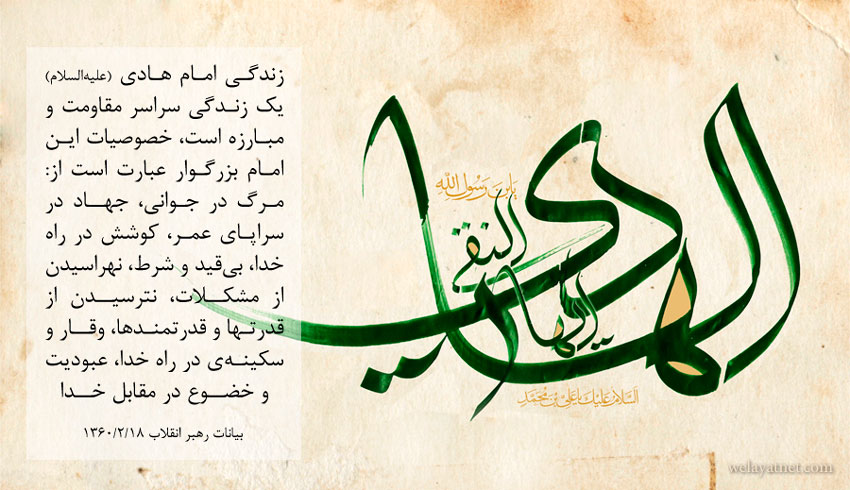 زندگی امام هادی (علیه‌السلام)
یک زندگی سراسر مقاومت و
مبارزه است، خصوصیات این
امام بزرگوار عبارت است از:
مرگ در جوانی، جهاد در
سراپای عمر، کوشش در راه
خدا، بی‌قید و شرط، نهراسیدن
از مشکلات، نترسیدن از
قدرتها و قدرتمندها، وقار و
سکینه‌ی در راه خدا، عبودیت
و خضوع در مقابل خدا
بیانات رهبر انقلاب ۱۳۶۰/۲/۱۸
یابن رسول الله
الهادی
النقی
السلام علیک یا علی بن محمد
welayatnet.com